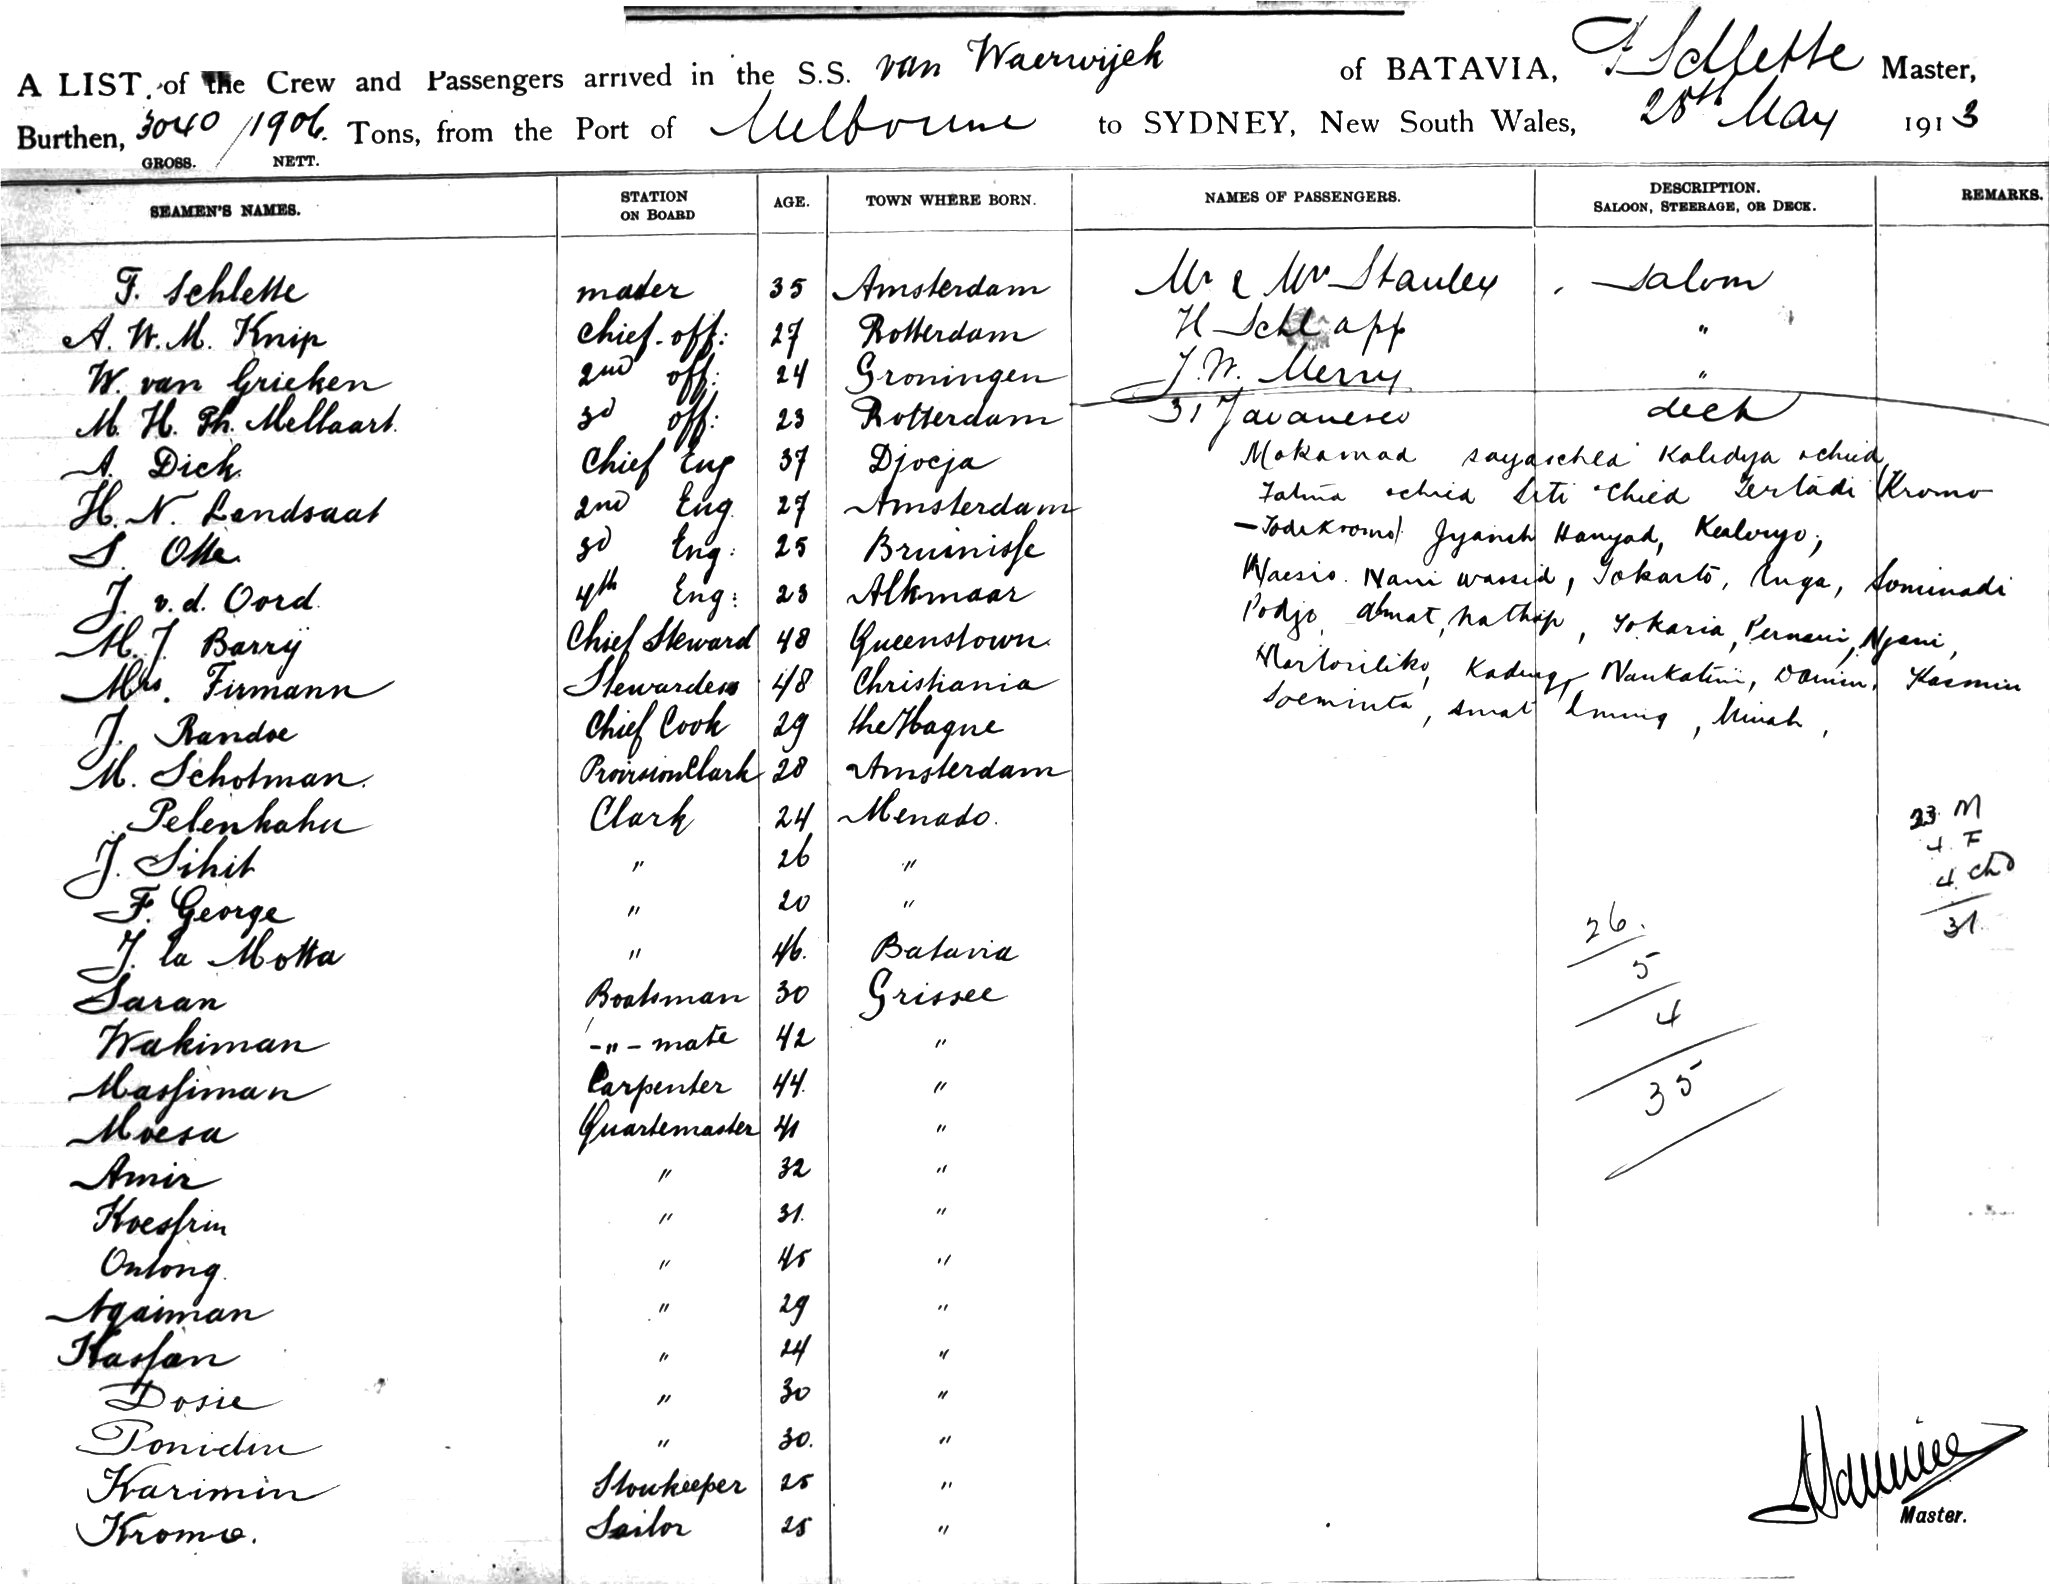 A LIST, of the Crew and Passengers arrived in the S.S. van Waerwijck of BATAVIA, F Schlette Master,
Burthen, 3040 / 1906. Tons, from the Port of Melbourne to SYDNEY, New South Wales, 28th May 1913
GROSS. NETT.
SEAMEN'S NAMES. STATION ON BOARD AGE. TOWN WHERE BORN. NAMES OF PASSENGERS. DESCRIPTION. SALOON, STEERAGE, OR DECK. REMARKS.
F. Schlette master 35 Amsterdam Mr & Mrs Stanley Saloon
A. W. M. Knip Chief-off: 27 Rotterdam H Schlapp "
W. van Grieken 2nd off: 24 Groningen J. W. Merry "
M. H. Th. Mellaart. 3d off: 23 Rotterdam 31 Javanese deck
A. Dick. Chief Eng 37 Djocja Mokamad Kalidya
H. N. Landsaat 2nd Eng. 27 Amsterdam Kromo
S. Otte. 3d Eng: 25 Bruinisse Todikromo
J. v. d. Oord. 4th Eng: 23 Alkmaar Nani wassid, Tokarto, Inga, Sominadi
M. J. Barrij Chief Steward 48 Queenstown. Podjo, Amat, Tokaria, Ngani,
Mrs. Firmann Stewardess 48 Christiania Kasmin
J. Randoe Chief Cook 29 the Hague Soeminta, Minah,
M. Schotman. Provision Clark 28 Amsterdam
Pelenkahu Clark 24 Menado. 23 M
J. Sihit " 26 " 4 F
F. George " 20 " 4 chd
J. la Motta " 46. Batavia 26. 31.
Saran Boatsman 30 Grissee 5
Wakiman -"- mate 42 " 4
Massiman Carpenter 44. " 35
Moesa Quartemaster 41 "
Amir " 32 "
Koessrin " 31. "
Ontong. " 45 "
Ngaiman " 29 "
Hassan " 24 "
Dosie " 30 "
Ponidin " 30. "
Karimin Storekeeper 25 "
Kromo. Sailor 25 "
Master.